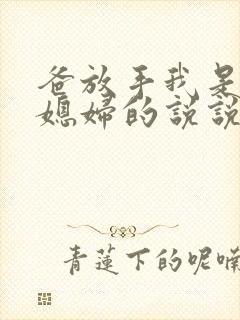 爸放手我是
媳妇的说说
青蓮下的呢喃